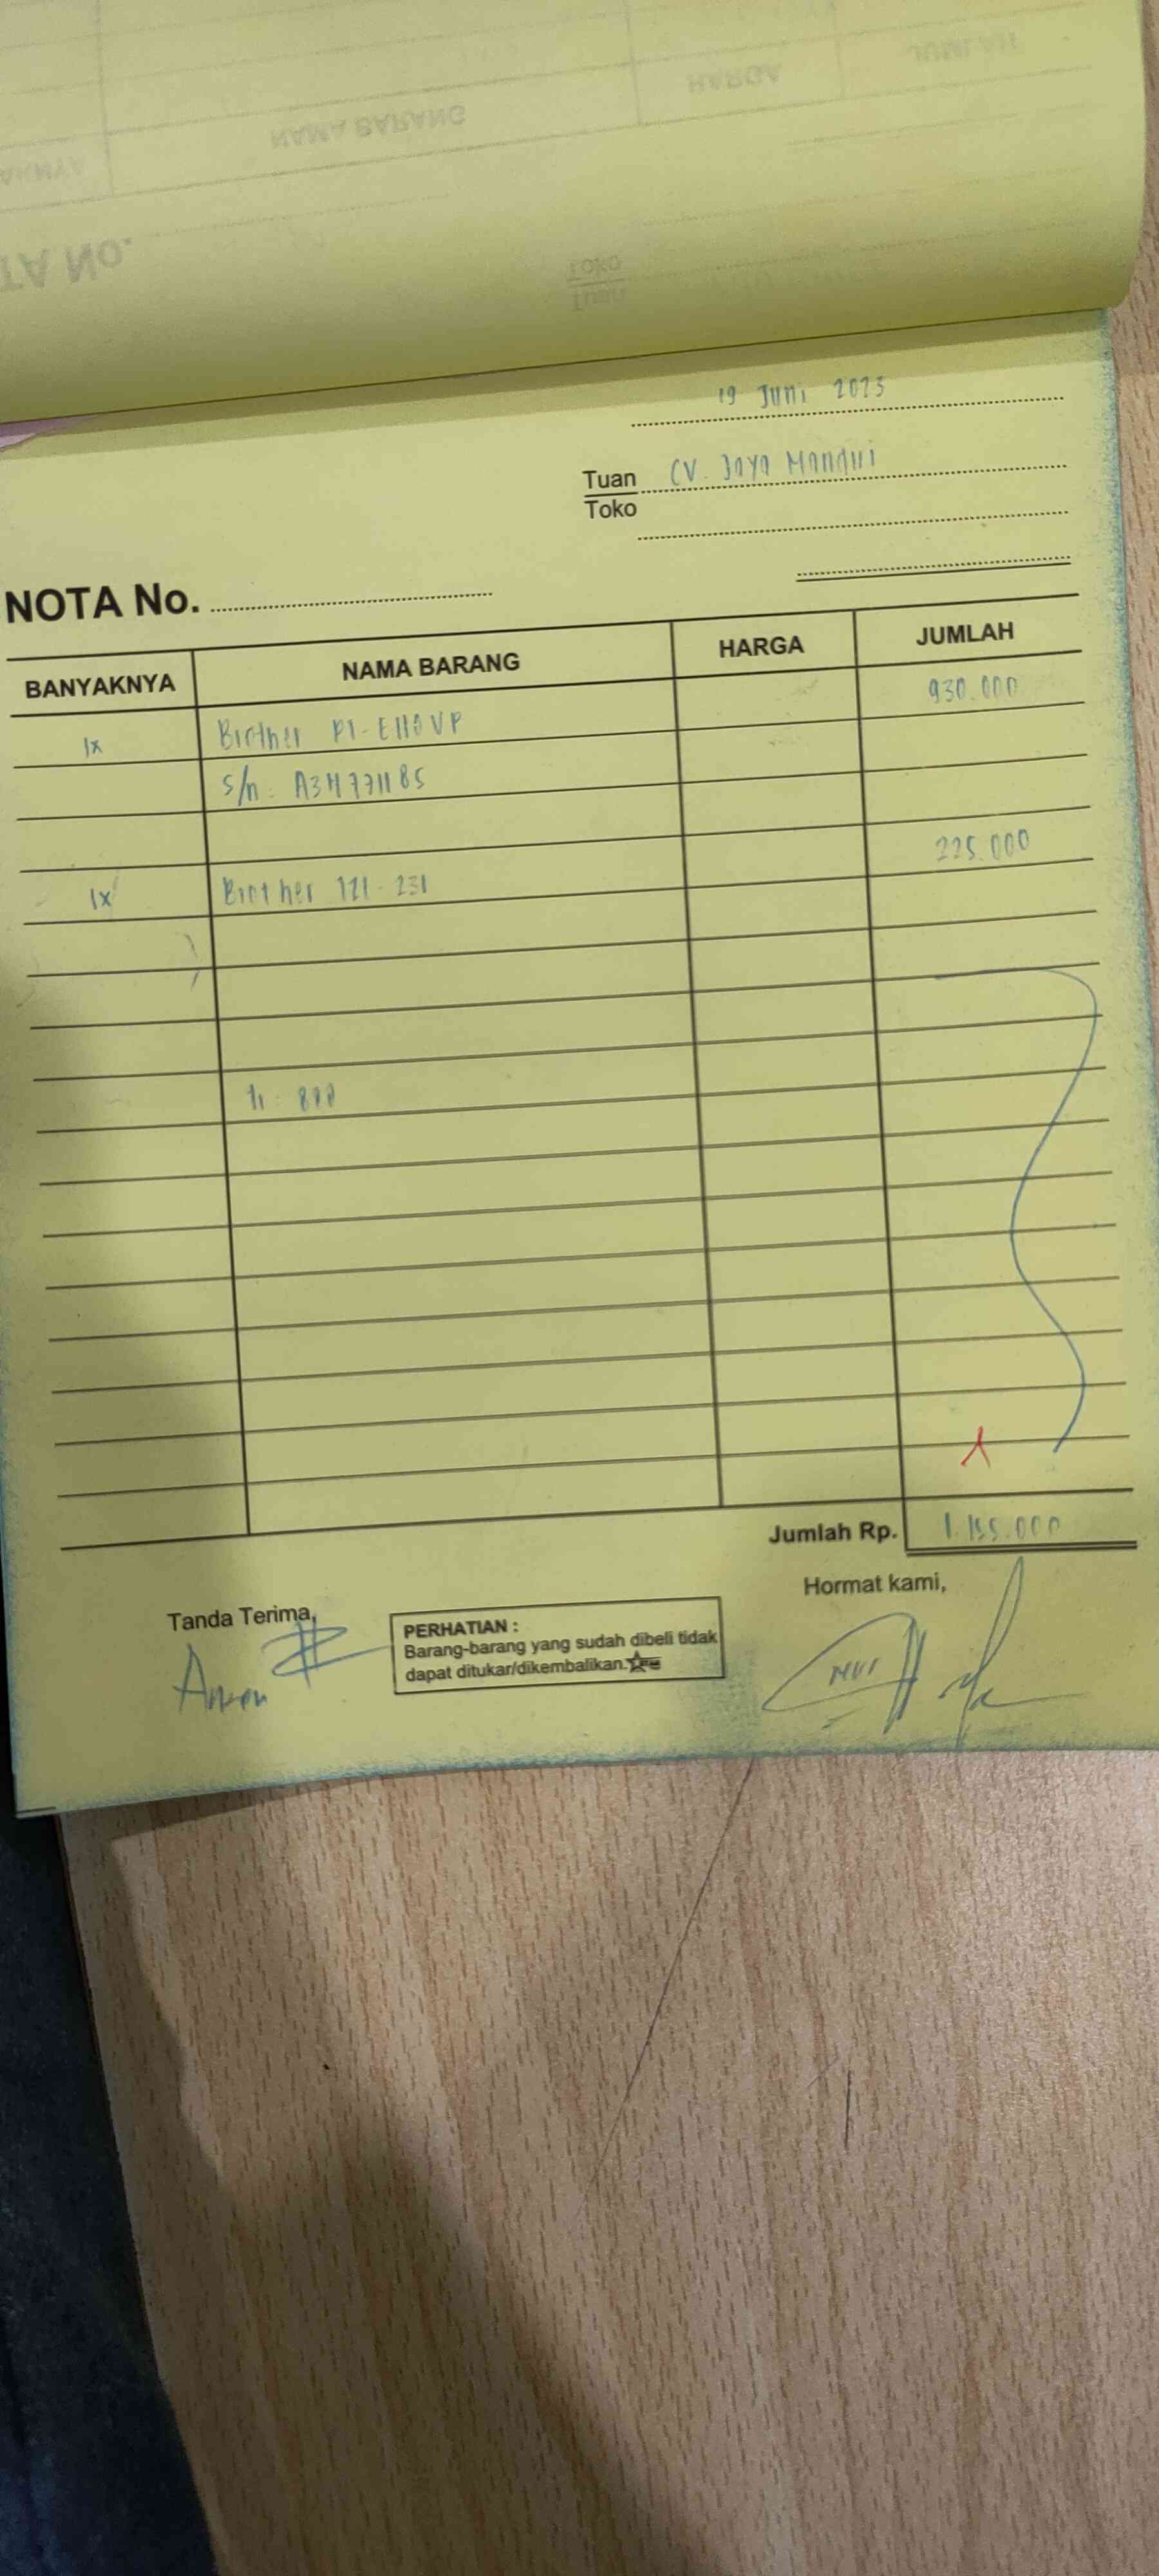 19 Juni 2023
Tuan CV. Jaya Mandiri
Toko
NOTA No.
BANYAKNYA NAMA BARANG HARGA JUMLAH
1x Brother PT-E110VP 930.000
s/n:
1x Brother TZE-231 225.000
Jumlah Rp. 1.155.000
Tanda Terima,
PERHATIAN :
Barang-barang yang sudah dibeli tidak
dapat ditukar/dikembalikan.
Hormat kami,